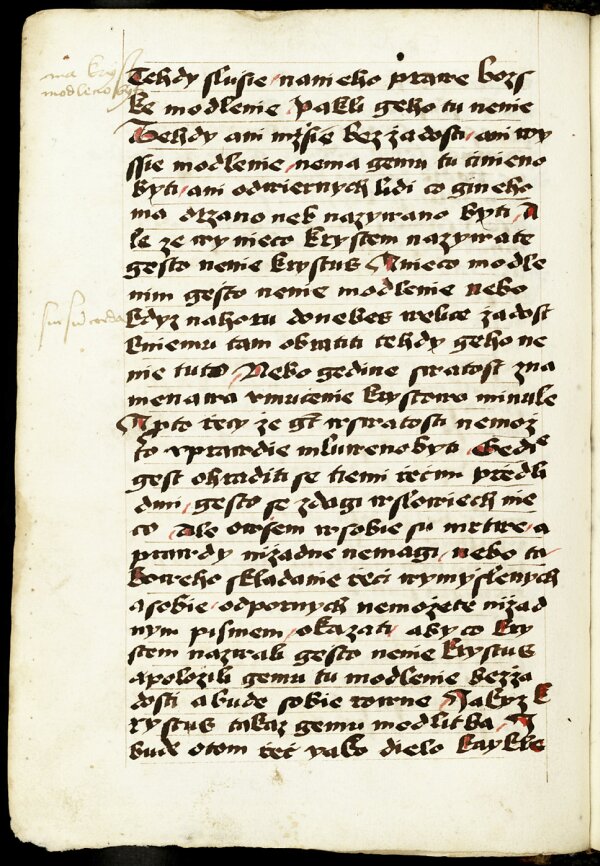 Tehdy slussie / nani eho prawe bozs
ke modlenie Pakli geho tu nenie
Tehdy ani mssie bez zadosti / ani wy
ssie modlenie / nema gemu tu cinieno
byti / ani odwiernych lidi co gineho
ma drzano neb nazywano byti / A
le ze wy nieco krystem nazywate
gesto nenie krystus A nieco modle
nim gesto nenie modlenie nebo
kdyz nahoru donebes welice zadost
kniemu tam obratiti tehdy geho ne
nie tuto / Nebo gedine swatost zna
menawa vmucenie krystowo minule
A pto recy ze gt wswatosti nemoz
to vprawdie mluweno byti / Gedie
gest ohraditi se tiemi recmi predli
dmi / gesto se zdagi wslowiech nie
co / Ale owsem wsobie su mrtwe / a
prawdy nizadne nemagi / nebo ta
koweho skladanie reci wymyslenych
asobie / odpornych nemozete nizad
nym pismem / okazati / aby co kry
stem nazwali gesto nenie krystus
apolozili gemu tu modlenie bezza
dosti abude sobie rowne / Jakyz k
rystus takaz gemu modlitba / A
bude otom rec yako dielo kaykle
ma kry
modleno byti
sursum corda